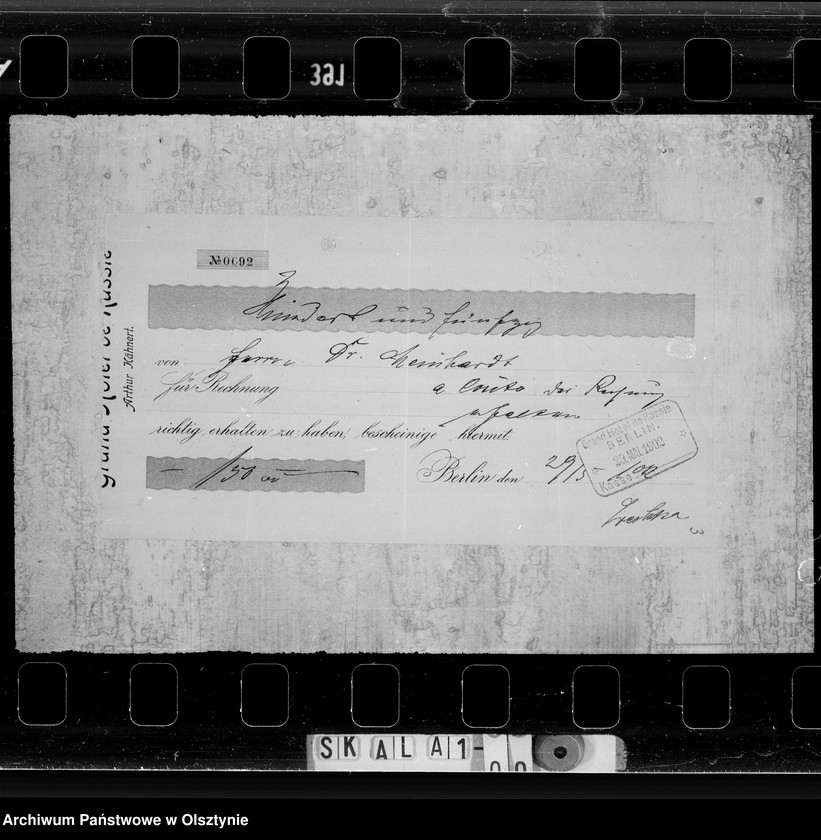 391
Grand Hotel de Russie
Arthur Kähnert.
№ 0092
Hundert und fünfzig
von Herrn Dr. Meinhardt
für Rechnung a Conto der Rechnung
erhalten
richtig erhalten zu haben, bescheinige hiermit.
150 00
Berlin den 29/5 02
Grand Hotel de Russie
BERLIN.
29. MAI. 1902
Kasse
3
SKALA 1-
Archiwum Państwowe w Olsztynie